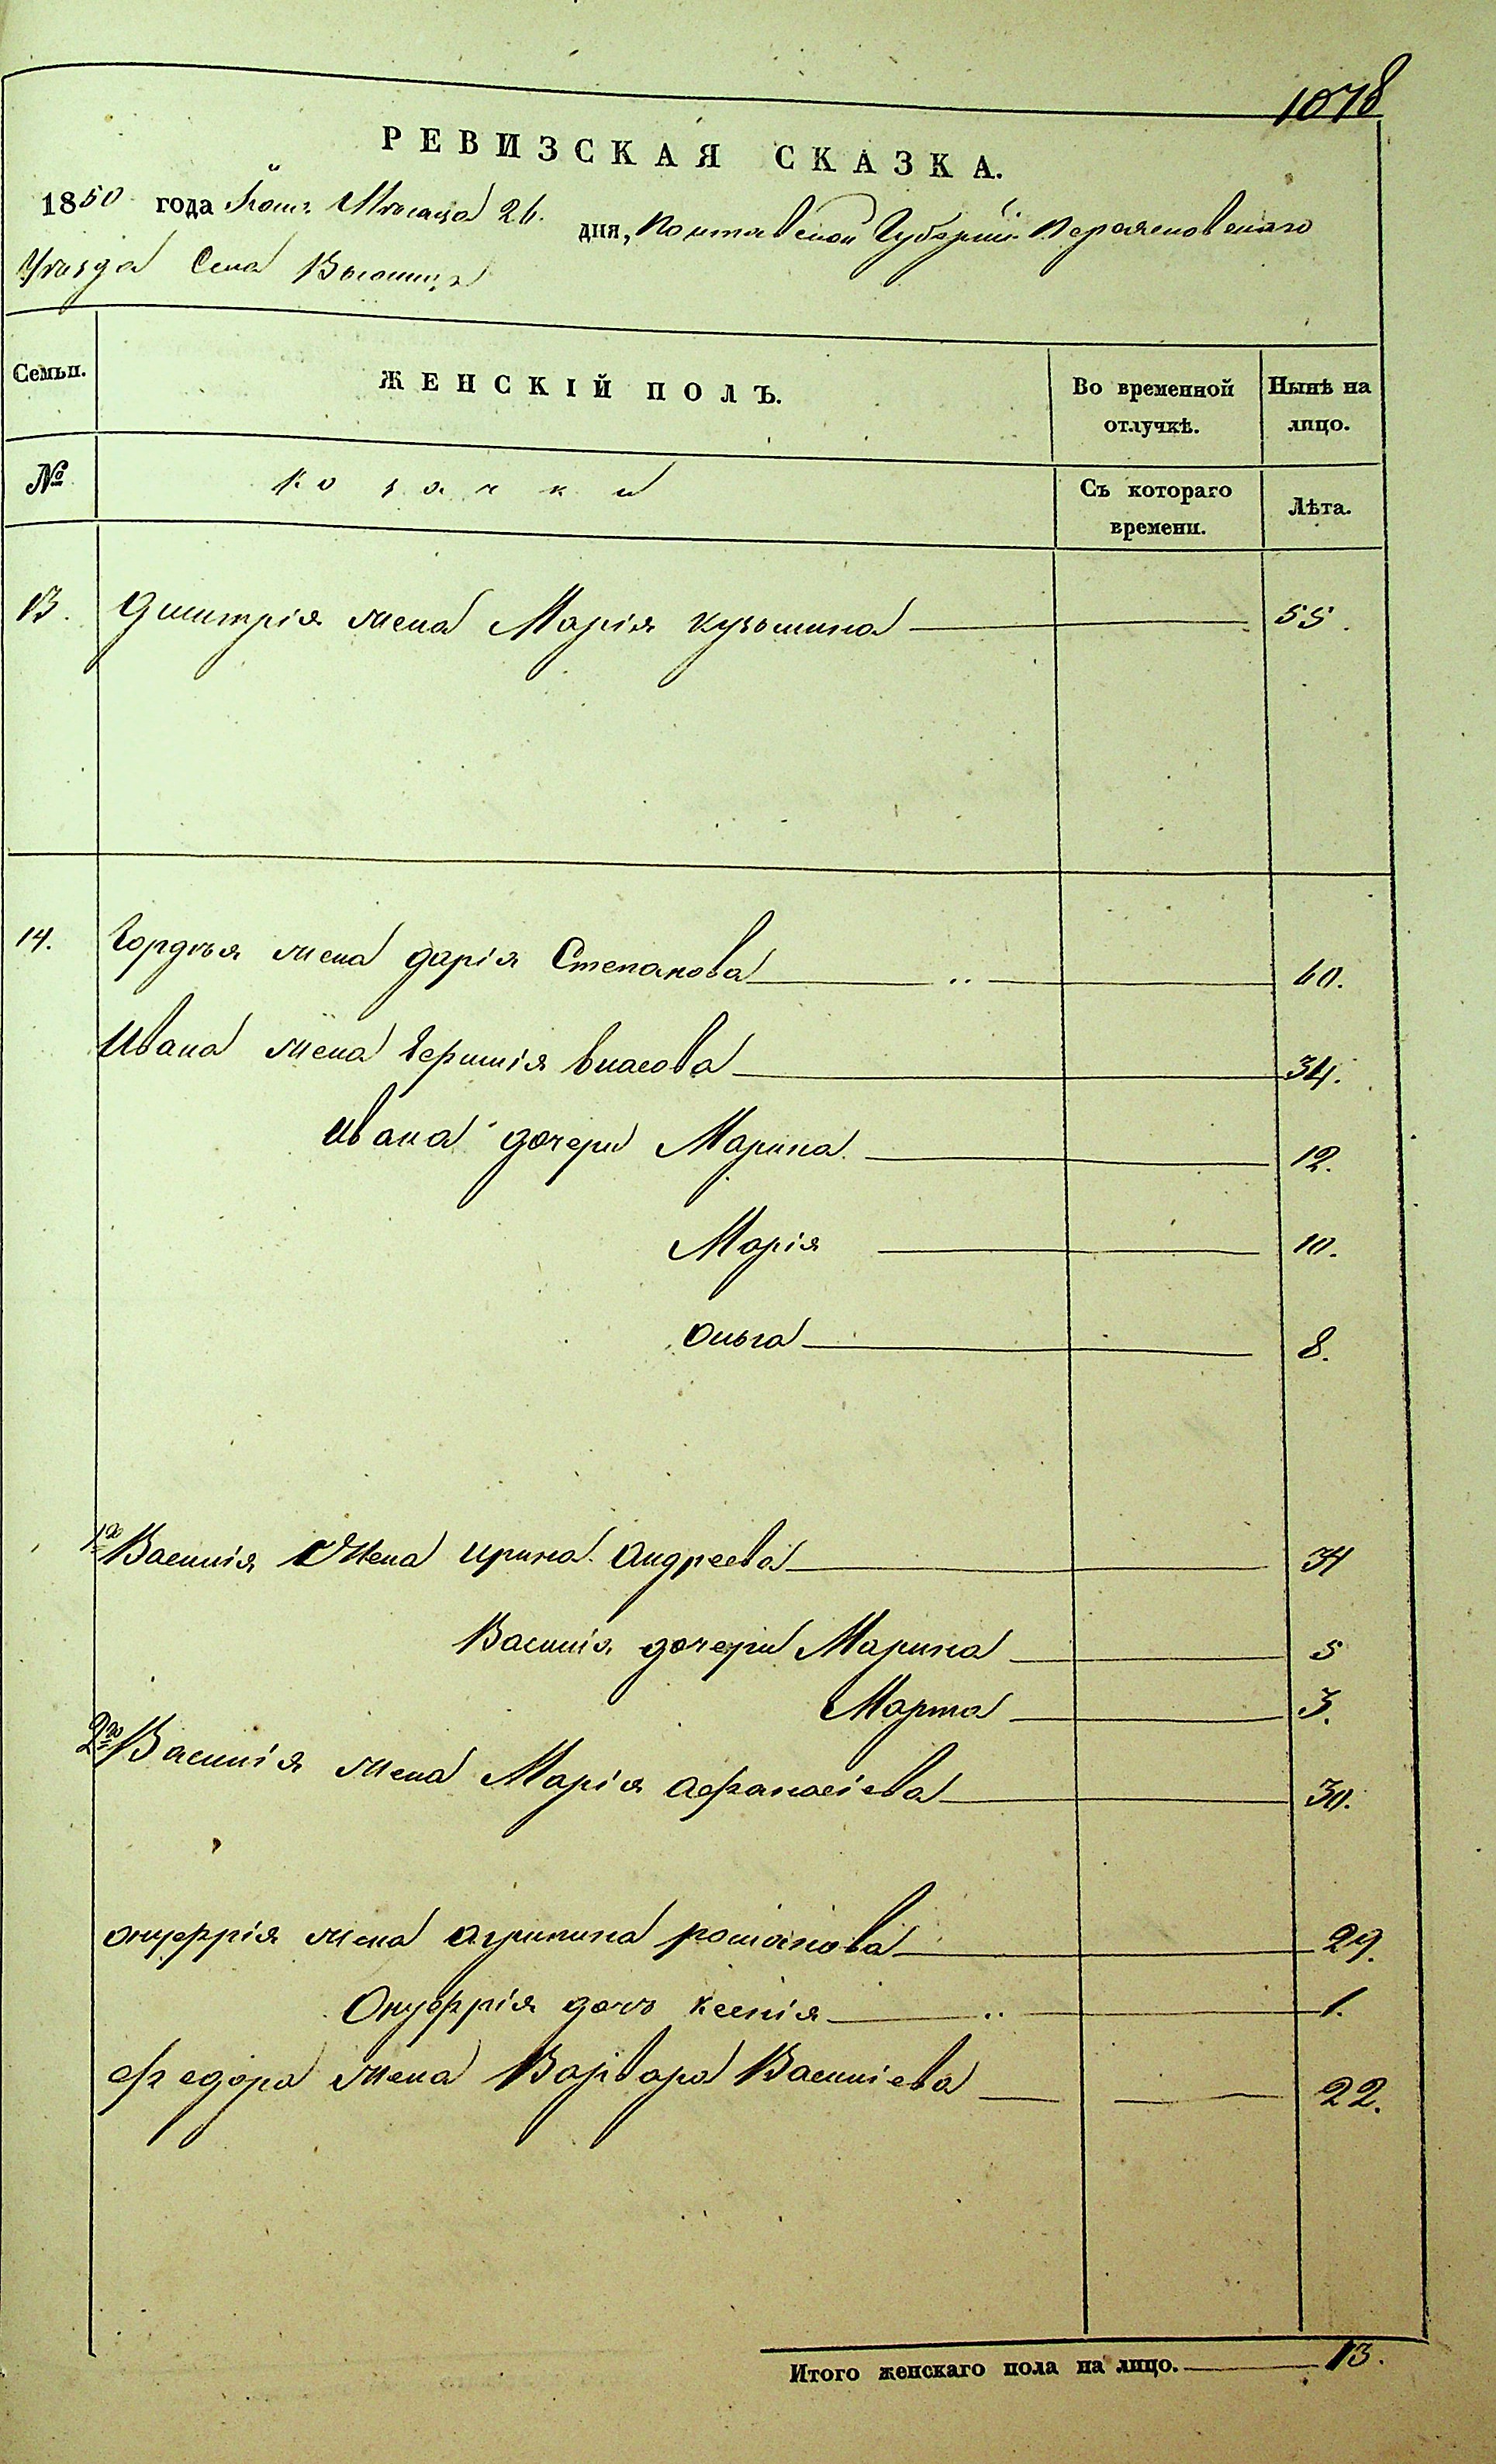 1078
РЕВИЗСКАЯ СКАЗКА.
1850 года Мѣсяца 26. дня, Полтавской Губерніи Переяславскаго
Уѣзда Села
Семьи. ЖЕНСКІЙ ПОЛЪ. Во временной отлучкѣ. Нынѣ на лицо.
№ Козачки Съ котораго времени. Лѣта.
13. Дмитрія жена Марія Кузьмина 55.
14. Гордѣя жена Дарія Степанова 60.
Ивана жена Власова 34.
Ивана дочери Марина 12.
Марія 10.
Ольга 8.
1го Василія Жена Ирина Андреева 34
Василія дочери Марина 5
Марта 3.
2го Василія жена Марія Афанасіева 30.
Онуфрія жена Агрипина Романова 29.
Онуфрія дочь Ксенія 1.
Федора жена Варвара Василіева 22.
Итого женскаго пола на лицо. 13.